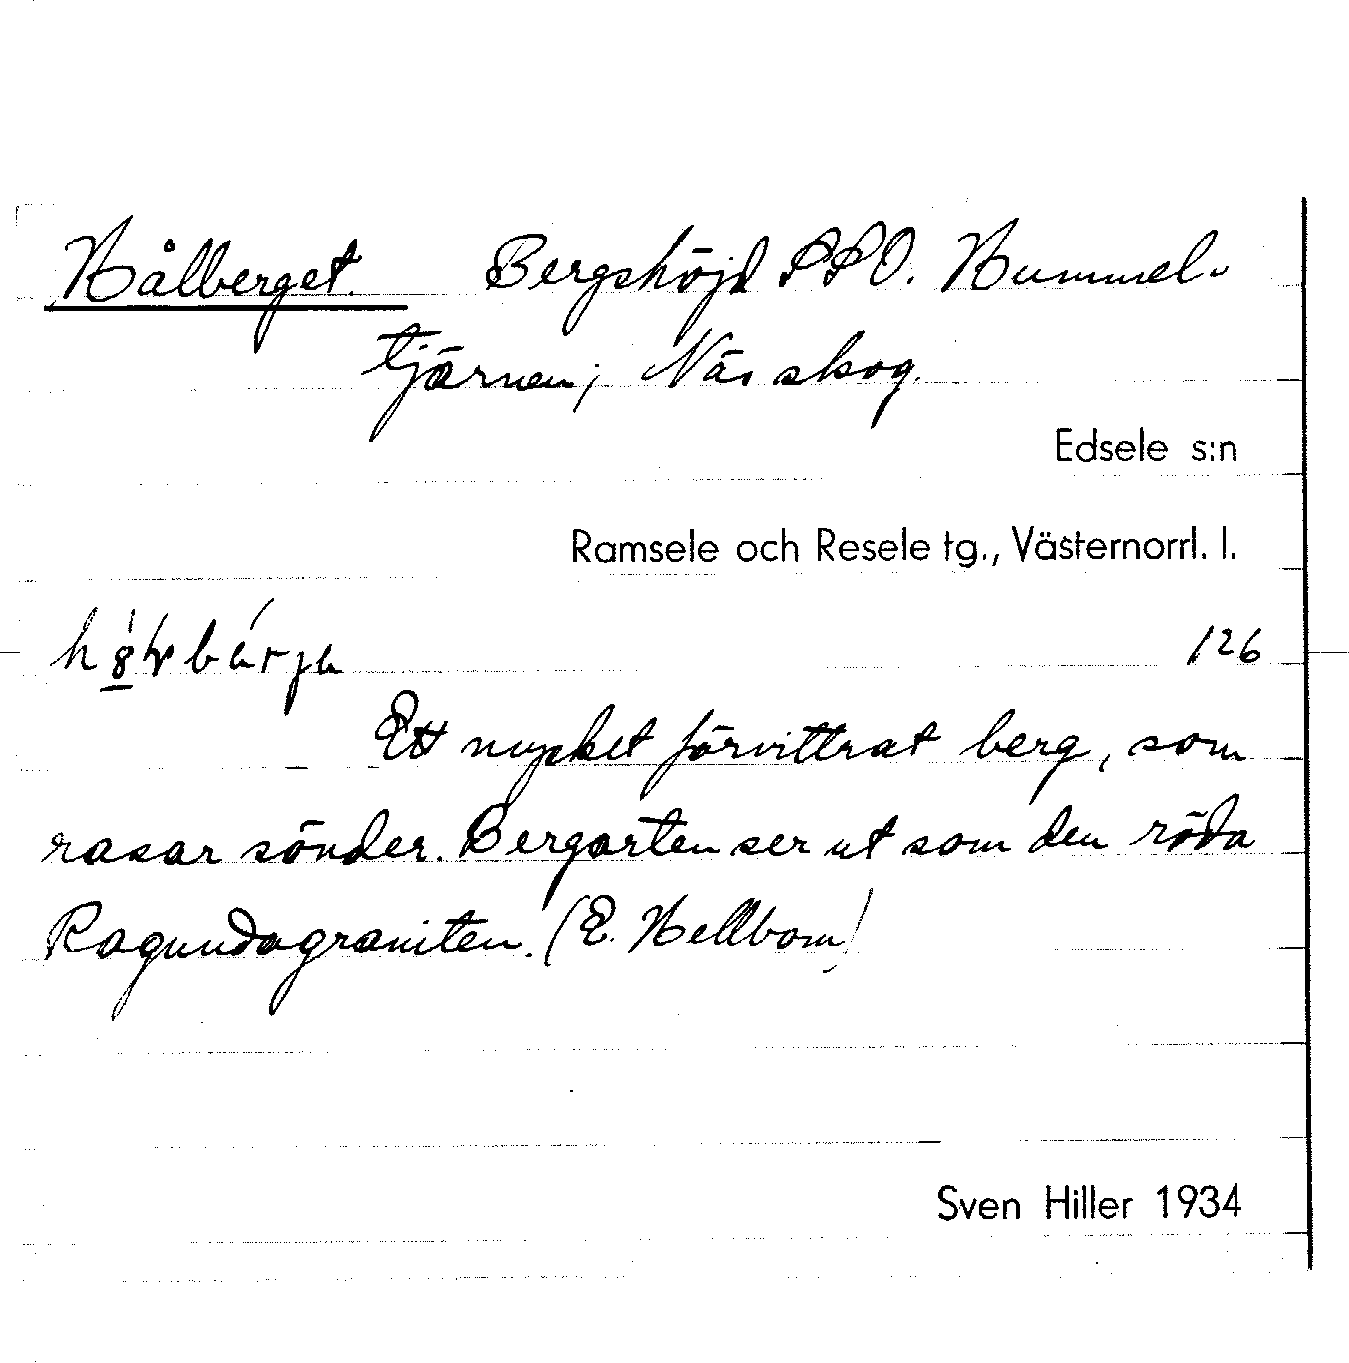 Hålberget. Bergshöjd SSO. Hummel-
tjärnen, Näs skog.
Edsele s:n
Ramsele och Resele tg., Västernorrl. l.
126
Ett mycket förvittrat berg, som
rasar sönder. Bergarten ser ut som den röda
Ragundagraniten. (E. Hellbom)
Sven Hiller 1934